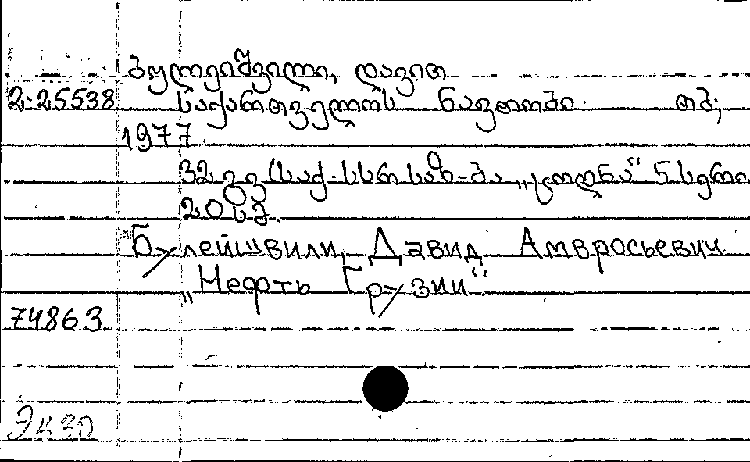 ბულეიშვილი, დავით
2-25538 საქართველოს ნავთობი. თბ;
1977
32 გვ (საქ. სსრ საზ-ბა „ცოდნა“ 5 სერია
20 კაპ.
Булейшвили, Давид Амвросьевич
„Нефть Грузии“
74863
Экз0